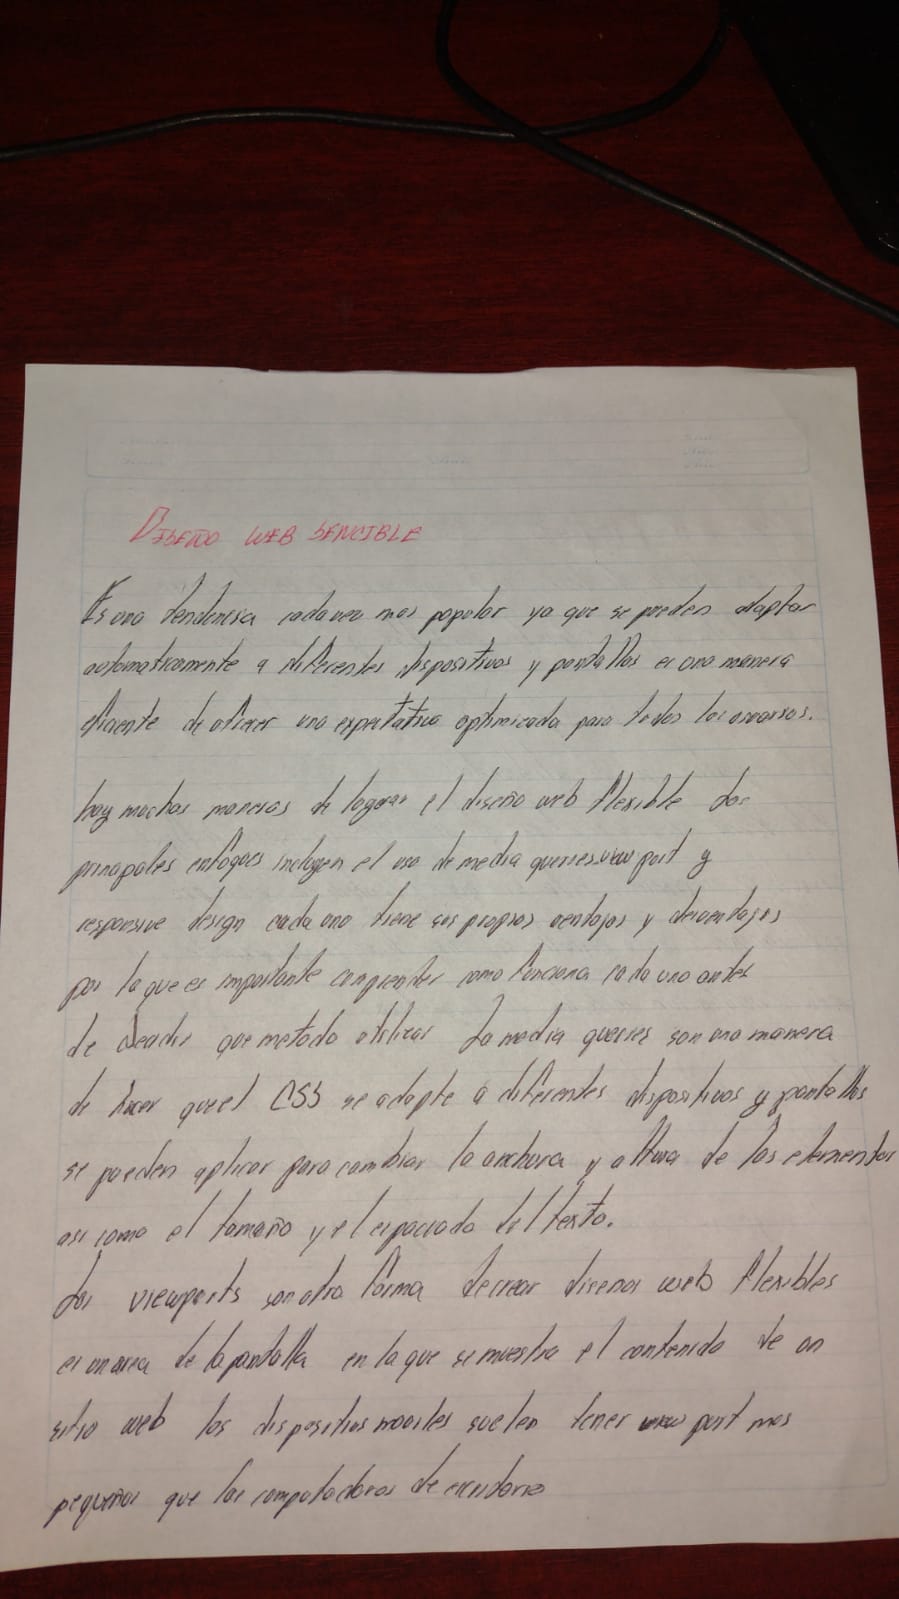 DISEÑO WEB SENCIBLE
Es una tendencia cada vez mas popular ya que se pueden adaptar
automaticamente a diferentes dispositivos y pantallas es una manera
eficiente de ofrecer una expectativa optimizada para todos los usuarios.
hay muchas maneras de lograr el diseño web flexible Los
principales enfoques incluyen el uso de media queries, view port y
responsive design cada uno tiene sus propias ventajas y desventajas
por la que es importante comprender como funciona cada uno antes
de decidir que metodo utilizar La media queries son una manera
de hacer que el CSS se adapte a diferentes dispositivos y pantallas
se pueden aplicar para cambiar la anchura y altura de los elementos
asi como el tamaño y el espaciado del texto.
Los viewports son otra forma de crear diseños web flexibles
es un area de la pantalla en la que se muestra el contenido de un
sitio web los dispositivos moviles suelen tener view port mas
pequeños que las computadoras de escritorio